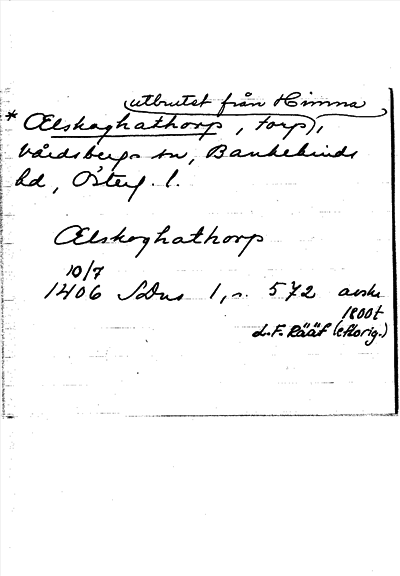 utbrutet från Himna
* Ælskoghathorp, torp,
Vårdsbergs sn, Bankekinds
hd, Östergl.
Ælskoghathorp
10/7
1406 SDns 1, s. 572 avskr
1800t
L.F. Rääf (e. orig.)